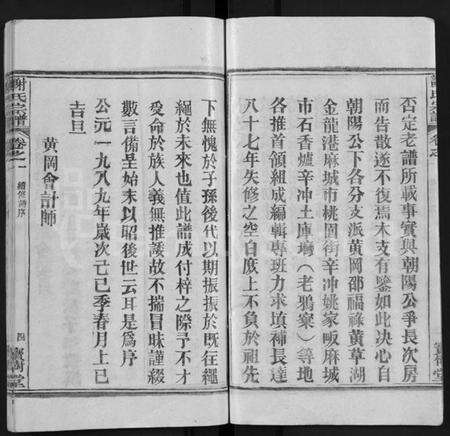 否定老譜所載事實與朝陽公爭長次房
而告散遂不復焉木支有鑒如此决心自
朝陽公下各分支派黄岡邵福祿黄草湖
金龍港麻城市桃園街辛冲姚家畈麻城
市石香爐辛冲土庫塆（老鴉寨）等地
各推首領組成編輯專班力求填補長達
八十七年失修之空自庶上不負於祖先
下無愧於子孫後代以期振振於既往繩
繩於未來也值此譜成付梓之際予不才
受命於族人義無推諉故不揣冒昧謹綴
數言備呈始末以昭後世云耳是為序
公元一九八九年歲次己巳季春月上巳
吉旦
黄岡會計師
謝氏宗譜
卷之一
續修詩序
四
寶樹堂